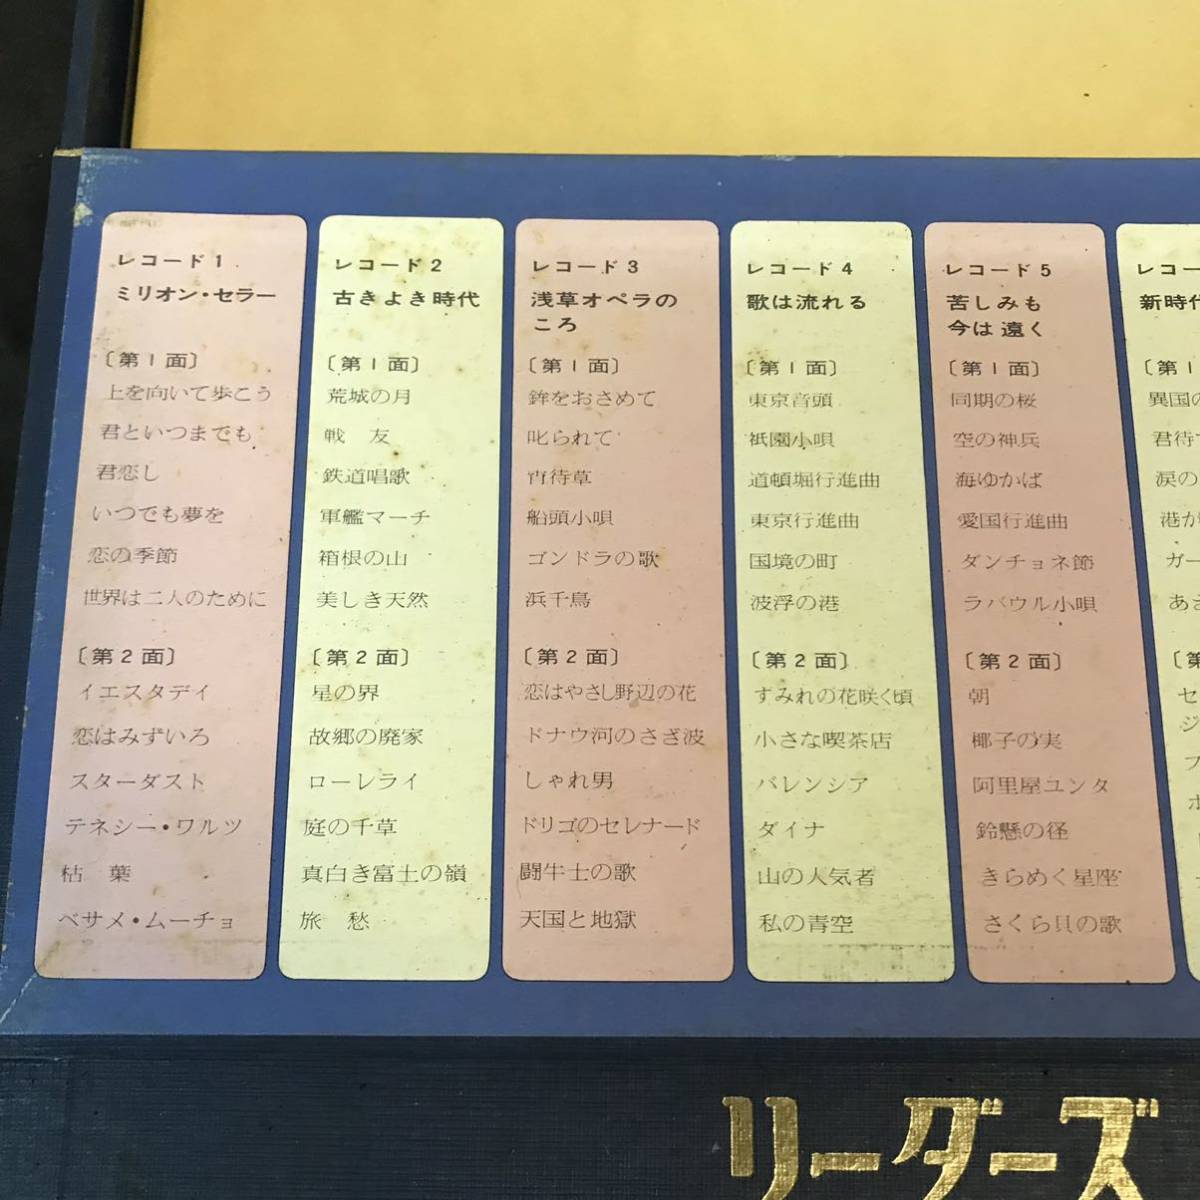 レコード 1
ミリオン・セラー
〔第 1 面〕
上を向いて歩こう
君といつまでも
君恋し
いつでも夢を
恋の季節
世界は二人のために
〔第 2 面〕
イエスタデイ
恋はみずいろ
スターダスト
テネシー・ワルツ
枯 葉
ベサメ・ムーチョ
レコード 2
古きよき時代
〔第 1 面〕
荒城の月
戦 友
鉄道唱歌
軍艦マーチ
箱根の山
美しき天然
〔第 2 面〕
星の界
故郷の廃家
ローレライ
庭の千草
真白き富士の嶺
旅 愁
レコード 3
浅草オペラの
ころ
〔第 1 面〕
鉾をおさめて
叱られて
宵待草
船頭小唄
ゴンドラの歌
浜千鳥
〔第 2 面〕
恋はやさし野辺の花
ドナウ河のさざ波
しゃれ男
ドリゴのセレナード
闘牛士の歌
天国と地獄
レコード 4
歌は流れる
〔第 1 面〕
東京音頭
祇園小唄
道頓堀行進曲
東京行進曲
国境の町
波浮の港
〔第 2 面〕
すみれの花咲く頃
小さな喫茶店
バレンシア
ダイナ
山の人気者
私の青空
レコード 5
苦しみも
今は 遠く
〔第 1 面〕
同期の桜
空の神兵
海ゆかば
愛国行進曲
ダンチョネ節
ラバウル小唄
〔第 2 面〕
朝
椰子の実
阿里屋ユンタ
鈴懸の径
きらめく星座
さくら貝の歌
レコー
新時代
〔第 1
異国の
君待て
涙の
港が
ガー
〔第
セ
ジ
リーダーズ